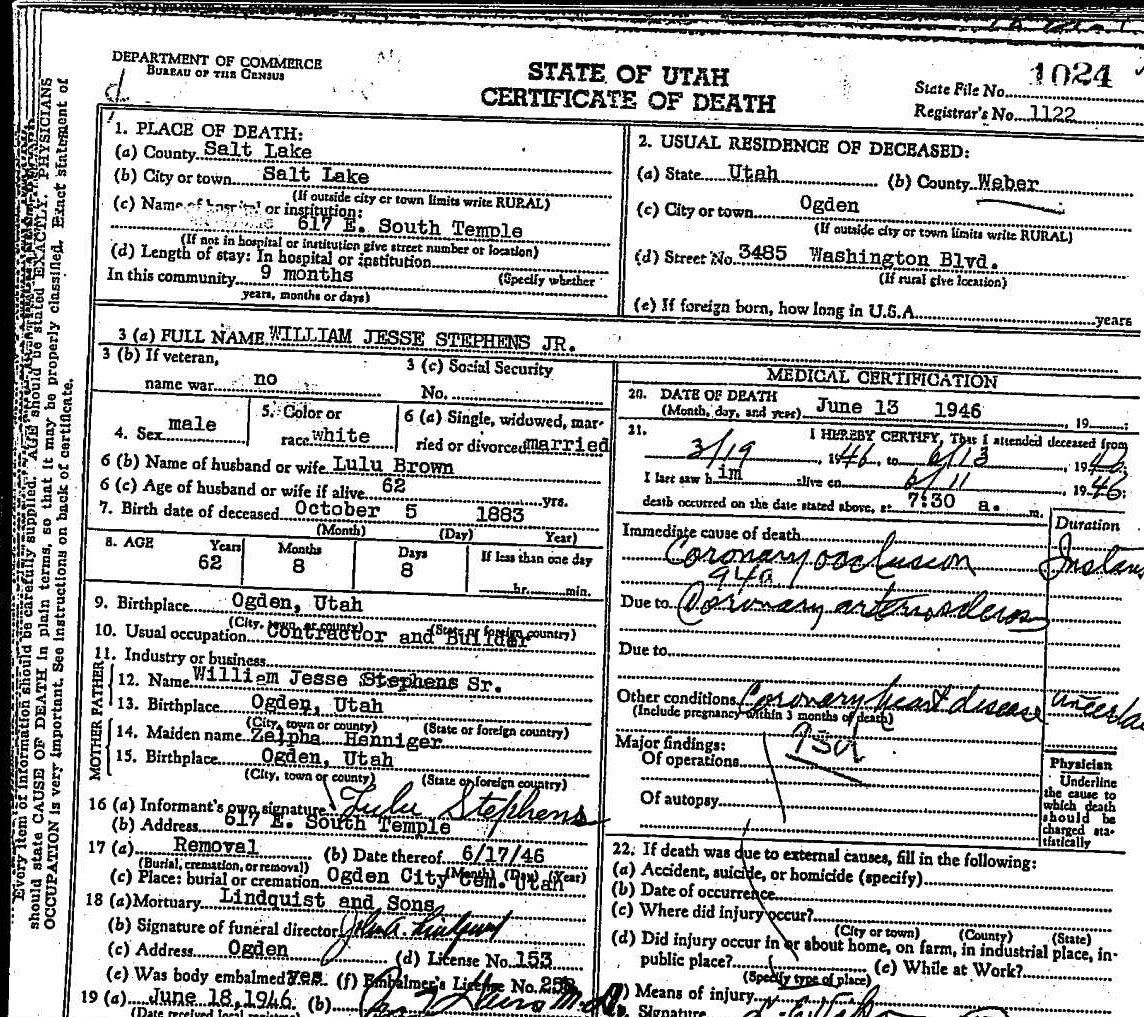 DEPARTMENT OF COMMERCE
BUREAU OF THE CENSUS
STATE OF UTAH
CERTIFICATE OF DEATH
1024
State File No.
Registrar's No. 1122
Every item of information should be carefully supplied. AGE should be stated EXACTLY. PHYSICIANS
should state CAUSE OF DEATH in plain terms, so that it may be properly classified. Exact statement of
OCCUPATION is very important. See instructions on back of certificate.
1. PLACE OF DEATH:
(a) County Salt Lake
(b) City or town Salt Lake
(If outside city or town limits write RURAL)
(c) Name of hospital or institution:
617 E. South Temple
(If not in hospital or institution give street number or location)
(d) Length of stay: In hospital or institution
(Specify whether
In this community 9 months
years, months or days)
2. USUAL RESIDENCE OF DECEASED:
(a) State Utah (b) County Weber
(c) City or town Ogden
(If outside city or town limits write RURAL)
(d) Street No. 3485 Washington Blvd.
(If rural give location)
(e) If foreign born, how long in U.S.A. years
3 (a) FULL NAME WILLIAM JESSE STEPHENS JR.
3 (b) If veteran,
name war no
3 (c) Social Security
No.
4. Sex male
5. Color or
race white
6 (a) Single, widowed, mar-
ried or divorced married
6 (b) Name of husband or wife Lulu Brown
6 (c) Age of husband or wife if alive 62 yrs.
7. Birth date of deceased October 5 1883
(Month) (Day) Year)
8. AGE Years Months Days If less than one day
62 8 8 hr. min.
9. Birthplace Ogden, Utah
(City, town, or county) (State or foreign country)
10. Usual occupation Contractor and Builder
11. Industry or business
FATHER
12. Name William Jesse Stephens Sr.
13. Birthplace Ogden, Utah
(City, town or county) (State or foreign country)
MOTHER
14. Maiden name Zelpha Henniger
15. Birthplace Ogden, Utah
(City, town or county) (State or foreign country)
16 (a) Informant's own signature Lulu Stephens
(b) Address 617 E. South Temple
17 (a) Removal (b) Date thereof 6/17/46
(Burial, cremation, or removal) (Month) (Day) (Year)
(c) Place: burial or cremation Ogden City Cem. Utah
18 (a) Mortuary Lindquist and Sons
(b) Signature of funeral director John A. Lindquist
(c) Address Ogden (d) License No. 153
(e) Was body embalmed? yes (f) Embalmer's License No.
19 (a) June 18, 1946 (b)
(Date received local
MEDICAL CERTIFICATION
20. DATE OF DEATH
(Month, day, and year) June 13 1946 , 19 :
21. I HEREBY CERTIFY, That I attended deceased from
3/19 , 1946, to 6/13 , 1946;
I last saw him alive on 6/11 , 1946;
death occurred on the date stated above, at 7:30 a. m.
Duration
Immediate cause of death
Coronary occlusion Instan
94a
Due to Coronary arteriosclerosis
Due to
Other conditions Coronary heart disease
(Include pregnancy within 3 months of death)
Major findings:
Of operations
Of autopsy
Physician
Underline
the cause to
which death
should be
charged sta-
tistically
22. If death was due to external causes, fill in the following:
(a) Accident, suicide, or homicide (specify)
(b) Date of occurrence
(c) Where did injury occur?
(City or town) (County) (State)
(d) Did injury occur in or about home, on farm, in industrial place, in-
public place? (e) While at Work?
(Specify type of place)
(f) Means of injury
Signature